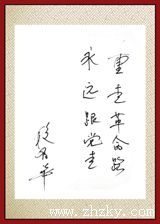 重走革命路
永远跟党走
www.zhzky.com